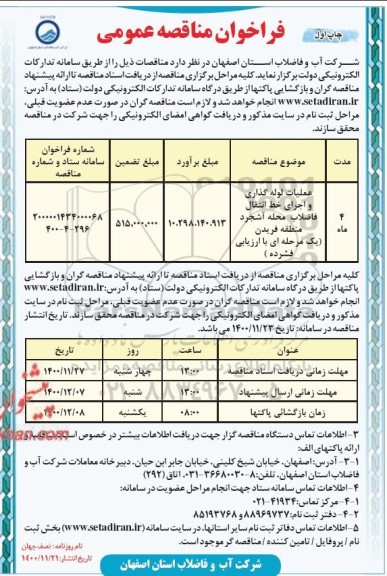 چاپ اول
فراخوان مناقصه عمومی
شرکت آب و فاضلاب استان اصفهان در نظر دارد مناقصات ذیل را از طریق سامانه تدارکات
الکترونیکی دولت برگزار نماید. کلیه مراحل برگزاری مناقصه از دریافت اسناد مناقصه تا ارائه پیشنهاد
مناقصه گران و بازگشایی پاکتها از طریق درگاه سامانه تدارکات الکترونیکی دولت (ستاد) به آدرس:
www.setadiran.ir انجام خواهد شد و لازم است مناقصه گران در صورت عدم عضویت قبلی،
مراحل ثبت نام در سایت مذکور و دریافت گواهی امضای الکترونیکی را جهت شرکت در مناقصه
محقق سازند.
مدت موضوع مناقصه مبلغ برآورد مبلغ تضمین شماره فراخوان سامانه ستاد و شماره مناقصه
۴ ماه
عملیات لوله گذاری
و اجرای خط انتقال
فاضلاب محله آشجرد
منطقه فریدن
(یک مرحله ای با ارزیابی
فشرده )
۱۰.۲۹۸.۱۴۰.۹۱۳
۵۱۵.۰۰۰.۰۰۰
۲۰۰۰۰۰۱۴۳۴۰۰۰۰۶۸
۴۰۰-۴-۲۹۶
کلیه مراحل برگزاری مناقصه از دریافت اسناد مناقصه تا ارائه پیشنهاد مناقصه گران و بازگشایی
پاکتها از طریق درگاه سامانه تدارکات الکترونیکی دولت (ستاد) به آدرس: www.setadiran.ir
انجام خواهد شد و لازم است مناقصه گران در صورت عدم عضویت قبلی، مراحل ثبت نام در سایت
مذکور و دریافت گواهی امضای الکترونیکی را جهت شرکت در مناقصه محقق سازند. تاریخ انتشار
مناقصه در سامانه: تاریخ ۱۴۰۰/۱۱/۲۳ می باشد.
عنوان ساعت روز تاریخ
مهلت زمانی دریافت اسناد مناقصه ۱۳:۰۰ چهار شنبه ۱۴۰۰/۱۱/۲۷
مهلت زمانی ارسال پیشنهاد ۱۳:۰۰ شنبه ۱۴۰۰/۱۲/۰۷
زمان بازگشائی پاکتها ۰۸:۰۰ یکشنبه ۱۴۰۰/۱۲/۰۸
۳-اطلاعات تماس دستگاه مناقصه گزار جهت دریافت اطلاعات بیشتر در خصوص اسناد
ارائه پاکتهای الف:
۳-۱- آدرس: اصفهان، خیابان شیخ کلینی، خیابان جابر ابن حیان، دبیرخانه معاملات شرکت آب و
فاضلاب استان اصفهان، تلفن: ۸-۳۶۶۸۰۰۳۰-۰۳۱، اتاق (۲۹۲)
۴-اطلاعات تماس سامانه ستاد جهت انجام مراحل عضویت در سامانه:
۴-۱- مرکز تماس: ۴۱۹۳۴-۰۲۱
۴-۲- دفتر ثبت نام: ۸۸۹۶۹۷۳۷ و ۸۵۱۹۳۷۶۸
۵-اطلاعات تماس دفاتر ثبت نام سایر استانها، در سایت سامانه (www.setadiran.ir) بخش ثبت
نام / پروفایل / تامین کننده / مناقصه گر موجود است.
شرکت آب و فاضلاب استان اصفهان
نام روزنامه : نصف جهان
تاریخ انتشار: ۱۴۰۰/۱۱/۲۱